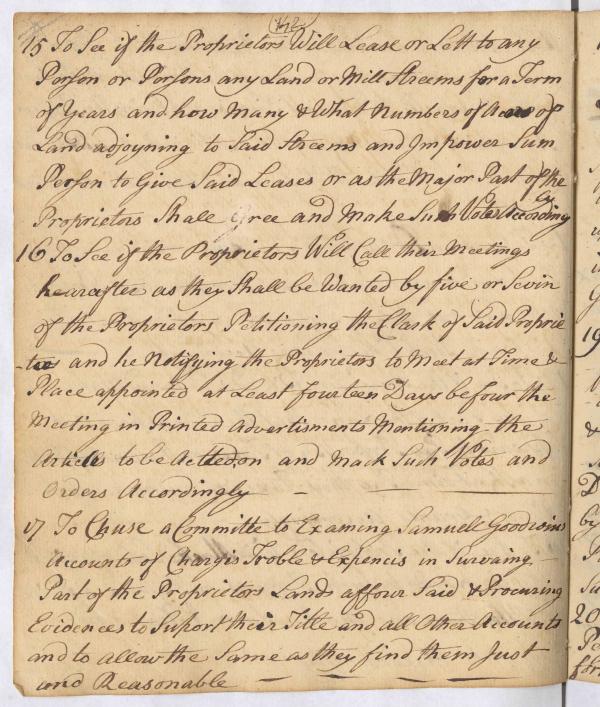 142
15 To See if the Proprietors Will Lease or Lett to any
Porson or Porsons any Land or Mill Streems for a Term
of Years and how Many & What Numbers of Acres of
Land adjoyning to Said Streems and Impower Sum
Porson to Give Said Leases or as the Major Part of the
Proprietors Shall Gree and Make Such Votes According
ly
16 To See if the Proprietors Will Call their Meetings
hearafter as they Shall be Wanted by five or Sevin
of the Proprietors Petitioning the Clark of Said Proprie
-tors and he Notifying the Proprietors to Meet at Time &
Place appointed at Least fourteen Days befour the
Meeting in Printed Advertisments Mentioning the
Articles to be Acted on and Mack Such Votes and
Orders Accordingly
17 To Chuse a Committe to Examing Samuell Goodwins
Accounts of Chargis Troble & Expencis in Survaing
Part of the Proprietors Lands affour Said & Procuring
Evidences to Suport their Title and all Other Accounts
and to allow the Same as they find them Just
and Reasonable
19
&
D
by
P
Su
20
Pe
for